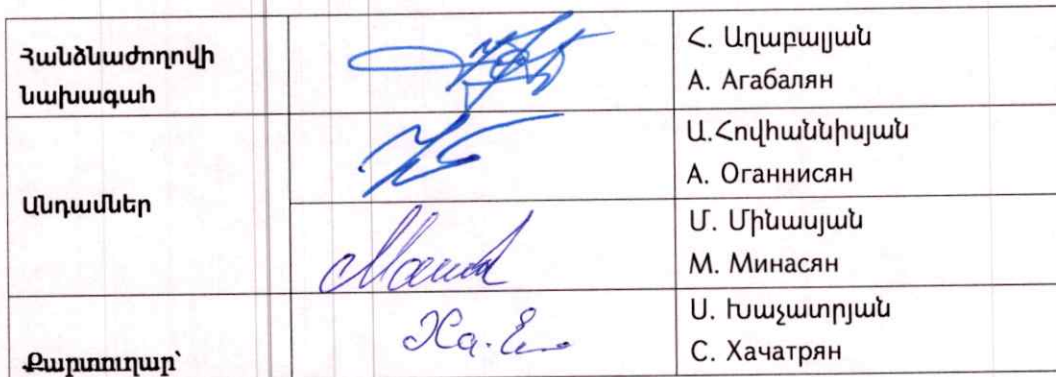 Հանձնաժողովի
նախագահ
Հ. Աղաբալյան
А. Агабалян
Անդամներ
Ա.Հովհաննիսյան
А. Оганнисян
Մ. Մինասյան
М. Минасян
Քարտուղար՝
Ս. Խաչատրյան
С. Хачатрян